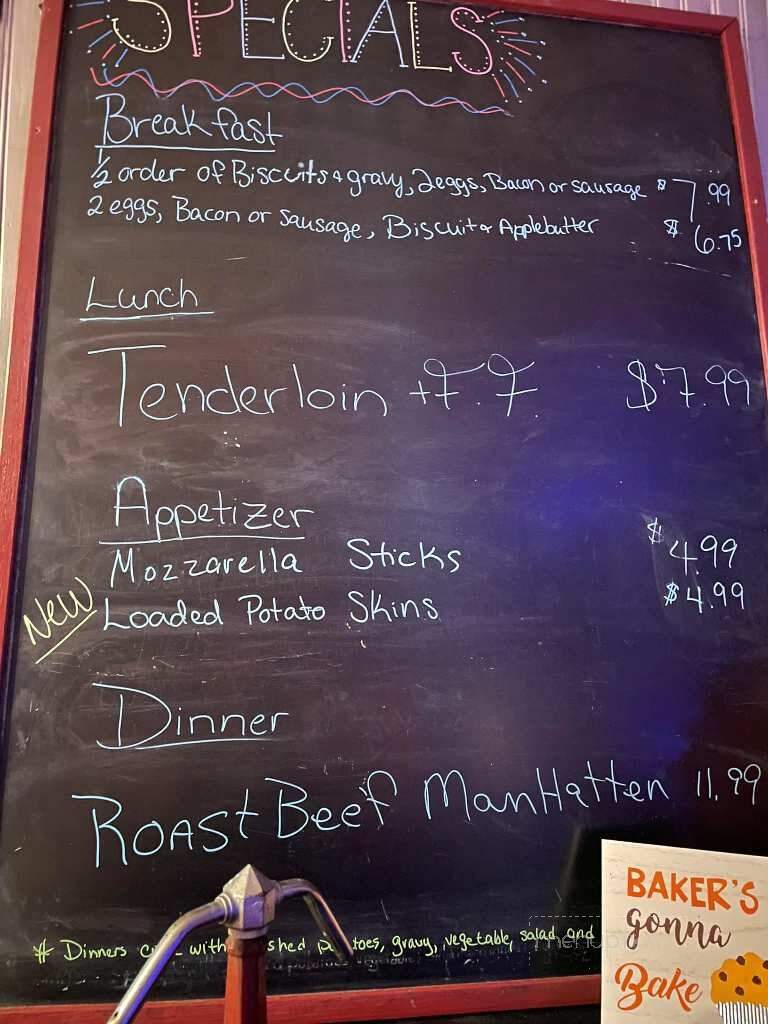 SPECIALS
Breakfast
1/2 order of Biscuits & gravy, 2 eggs, Bacon or sausage $7.99
2 eggs, Bacon or sausage, Biscuit & Applebutter $6.75
Lunch
Tenderloin + F.F. $7.99
Appetizer
Mozzarella Sticks $4.99
New Loaded Potato Skins $4.99
Dinner
Roast Beef ManHatten 11.99
# Dinners with gravy, vegetable, salad and
BAKER'S
gonna
Bake